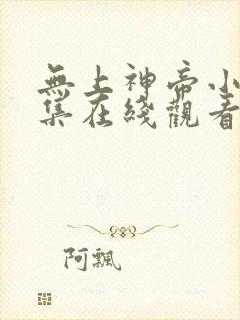 無上神帝小
集在綫觀看
阿飄